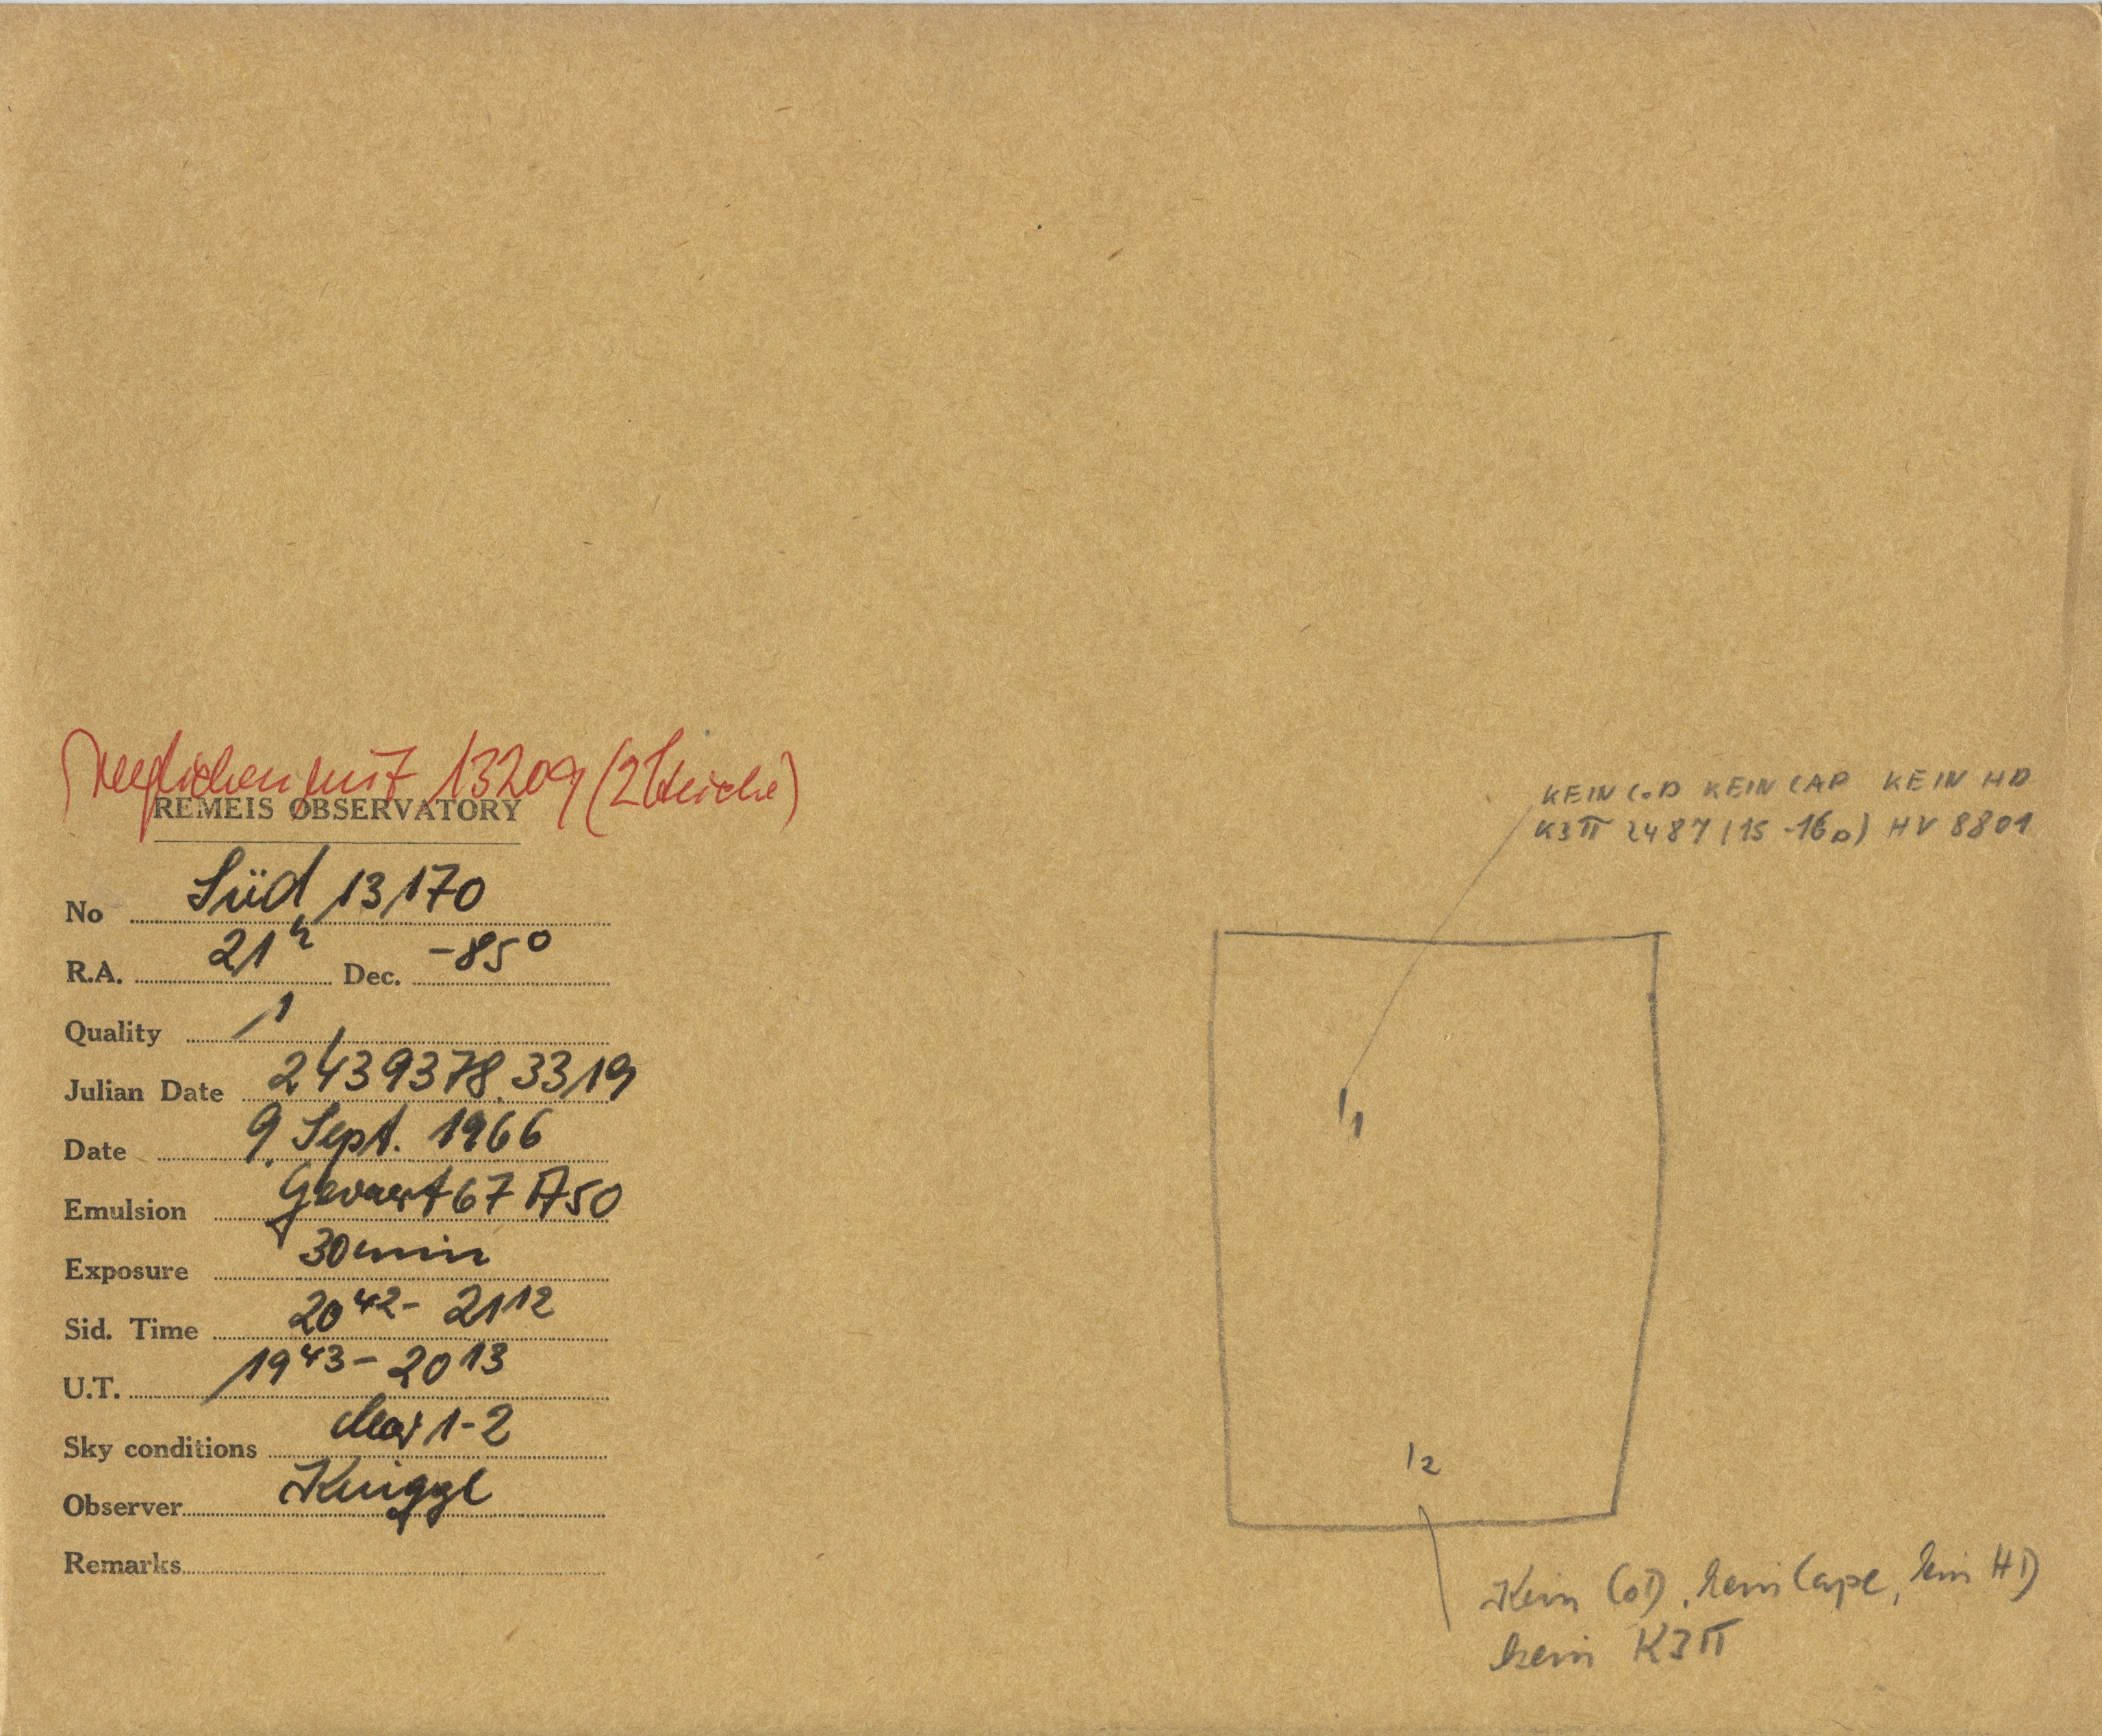 verglichen mit 13209 (2 Striche)
REMEIS OBSERVATORY
No Süd 13170
R.A. 21h Dec. -85°
Quality 1
Julian Date 2439378.3319
Date 9. Sept. 1966
Emulsion Gevaert 67 A50
Exposure 30min
Sid. Time 20 42 - 21 12
U.T. 19 43 - 20 13
Sky conditions klar 1-2
Observer Knigge
Remarks
KEIN CoD KEIN CAP KEIN HD
K3Π 2487 (15-16p) HV 8801
1
2
Kein CoD, kein Cape, kein HD
kein K3Π